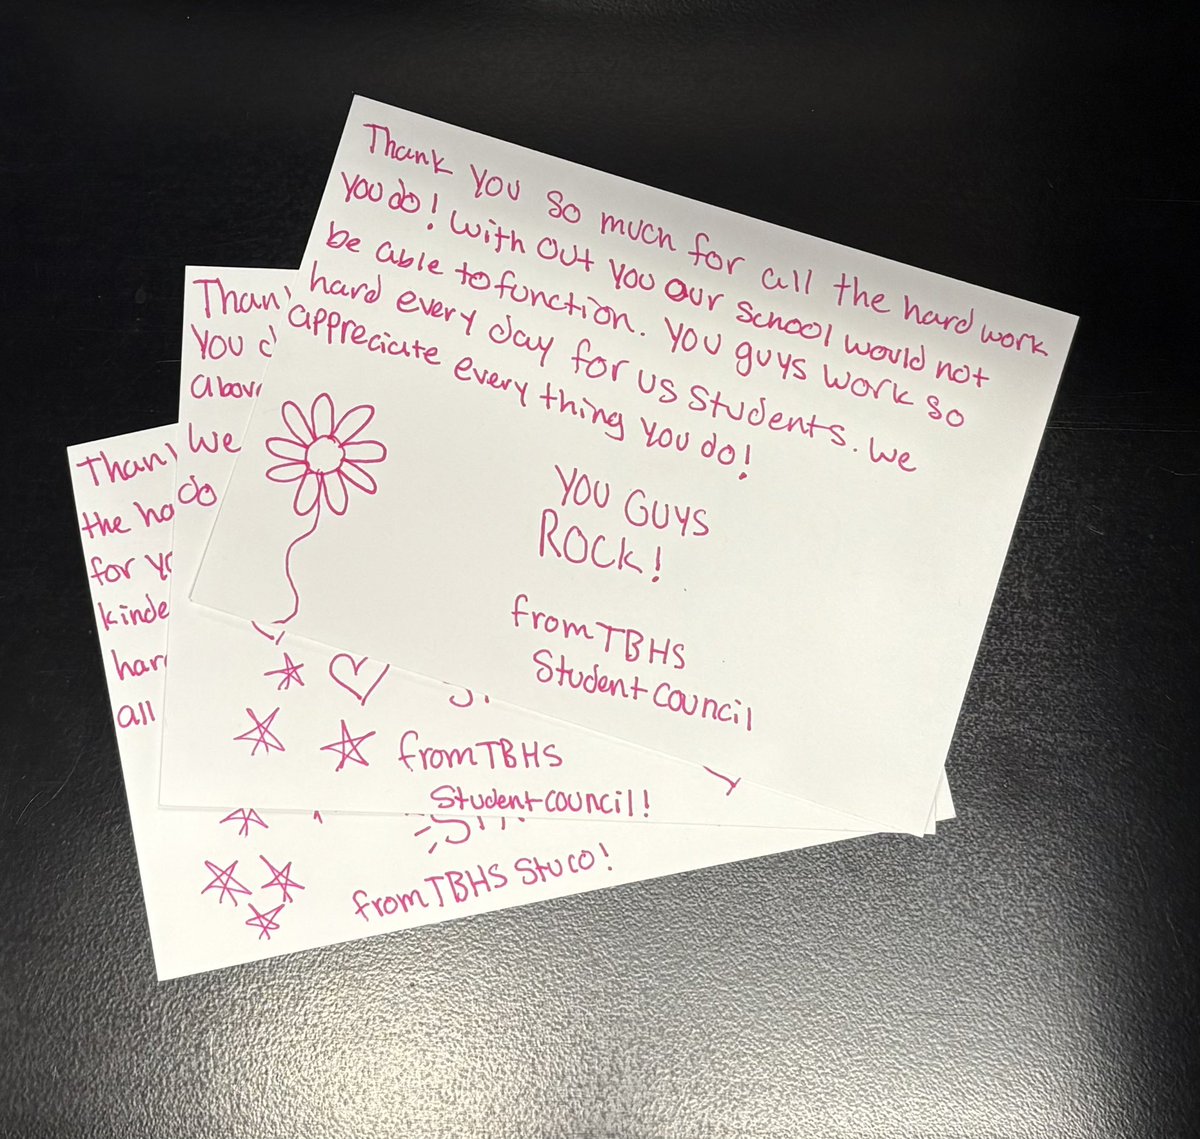 Thank you so much for all the hard work
you do! With out you our school would not
be able to function. You guys work so
hard every day for us students. We
appreciate every thing you do!
YOU GUYS
ROCK!
from TBHS
Student council
Than
you d
abov
We
do
from TBHS
Student council!
Than
the ha
for yo
kinde
hard
all
from TBHS Stuco!